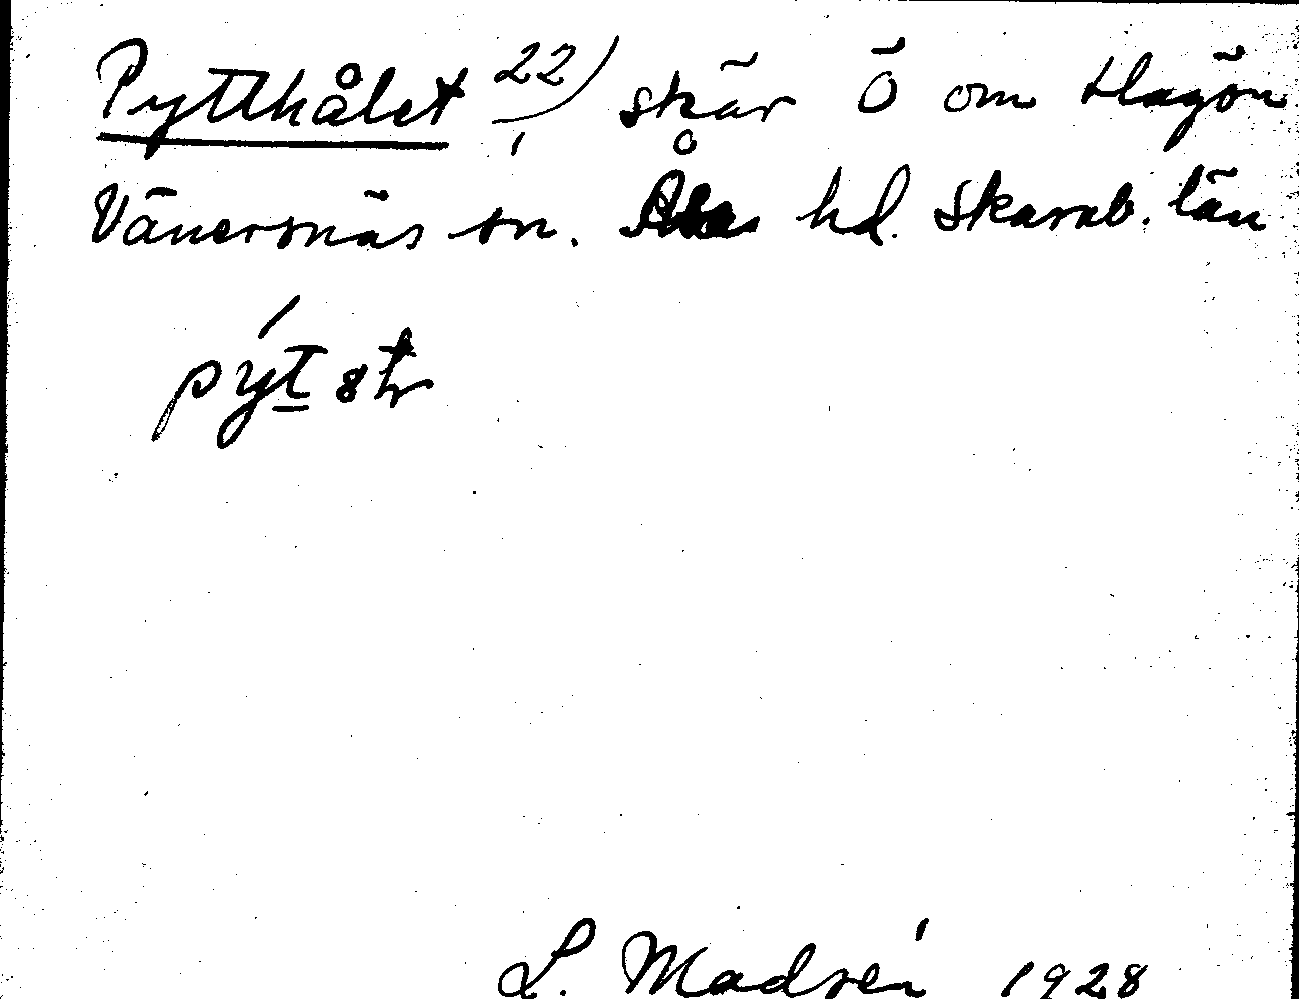 Pytthålet 22), skär Ö om Hagön
Vänersnäs sn. Åse hd. Skarab. län
pýt
L. Madsén 1928